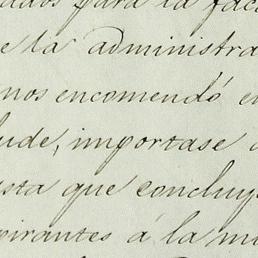 para la fac
e la administra
nos encomendó e
ude, importase a
sta que concluy
pirantes á la m